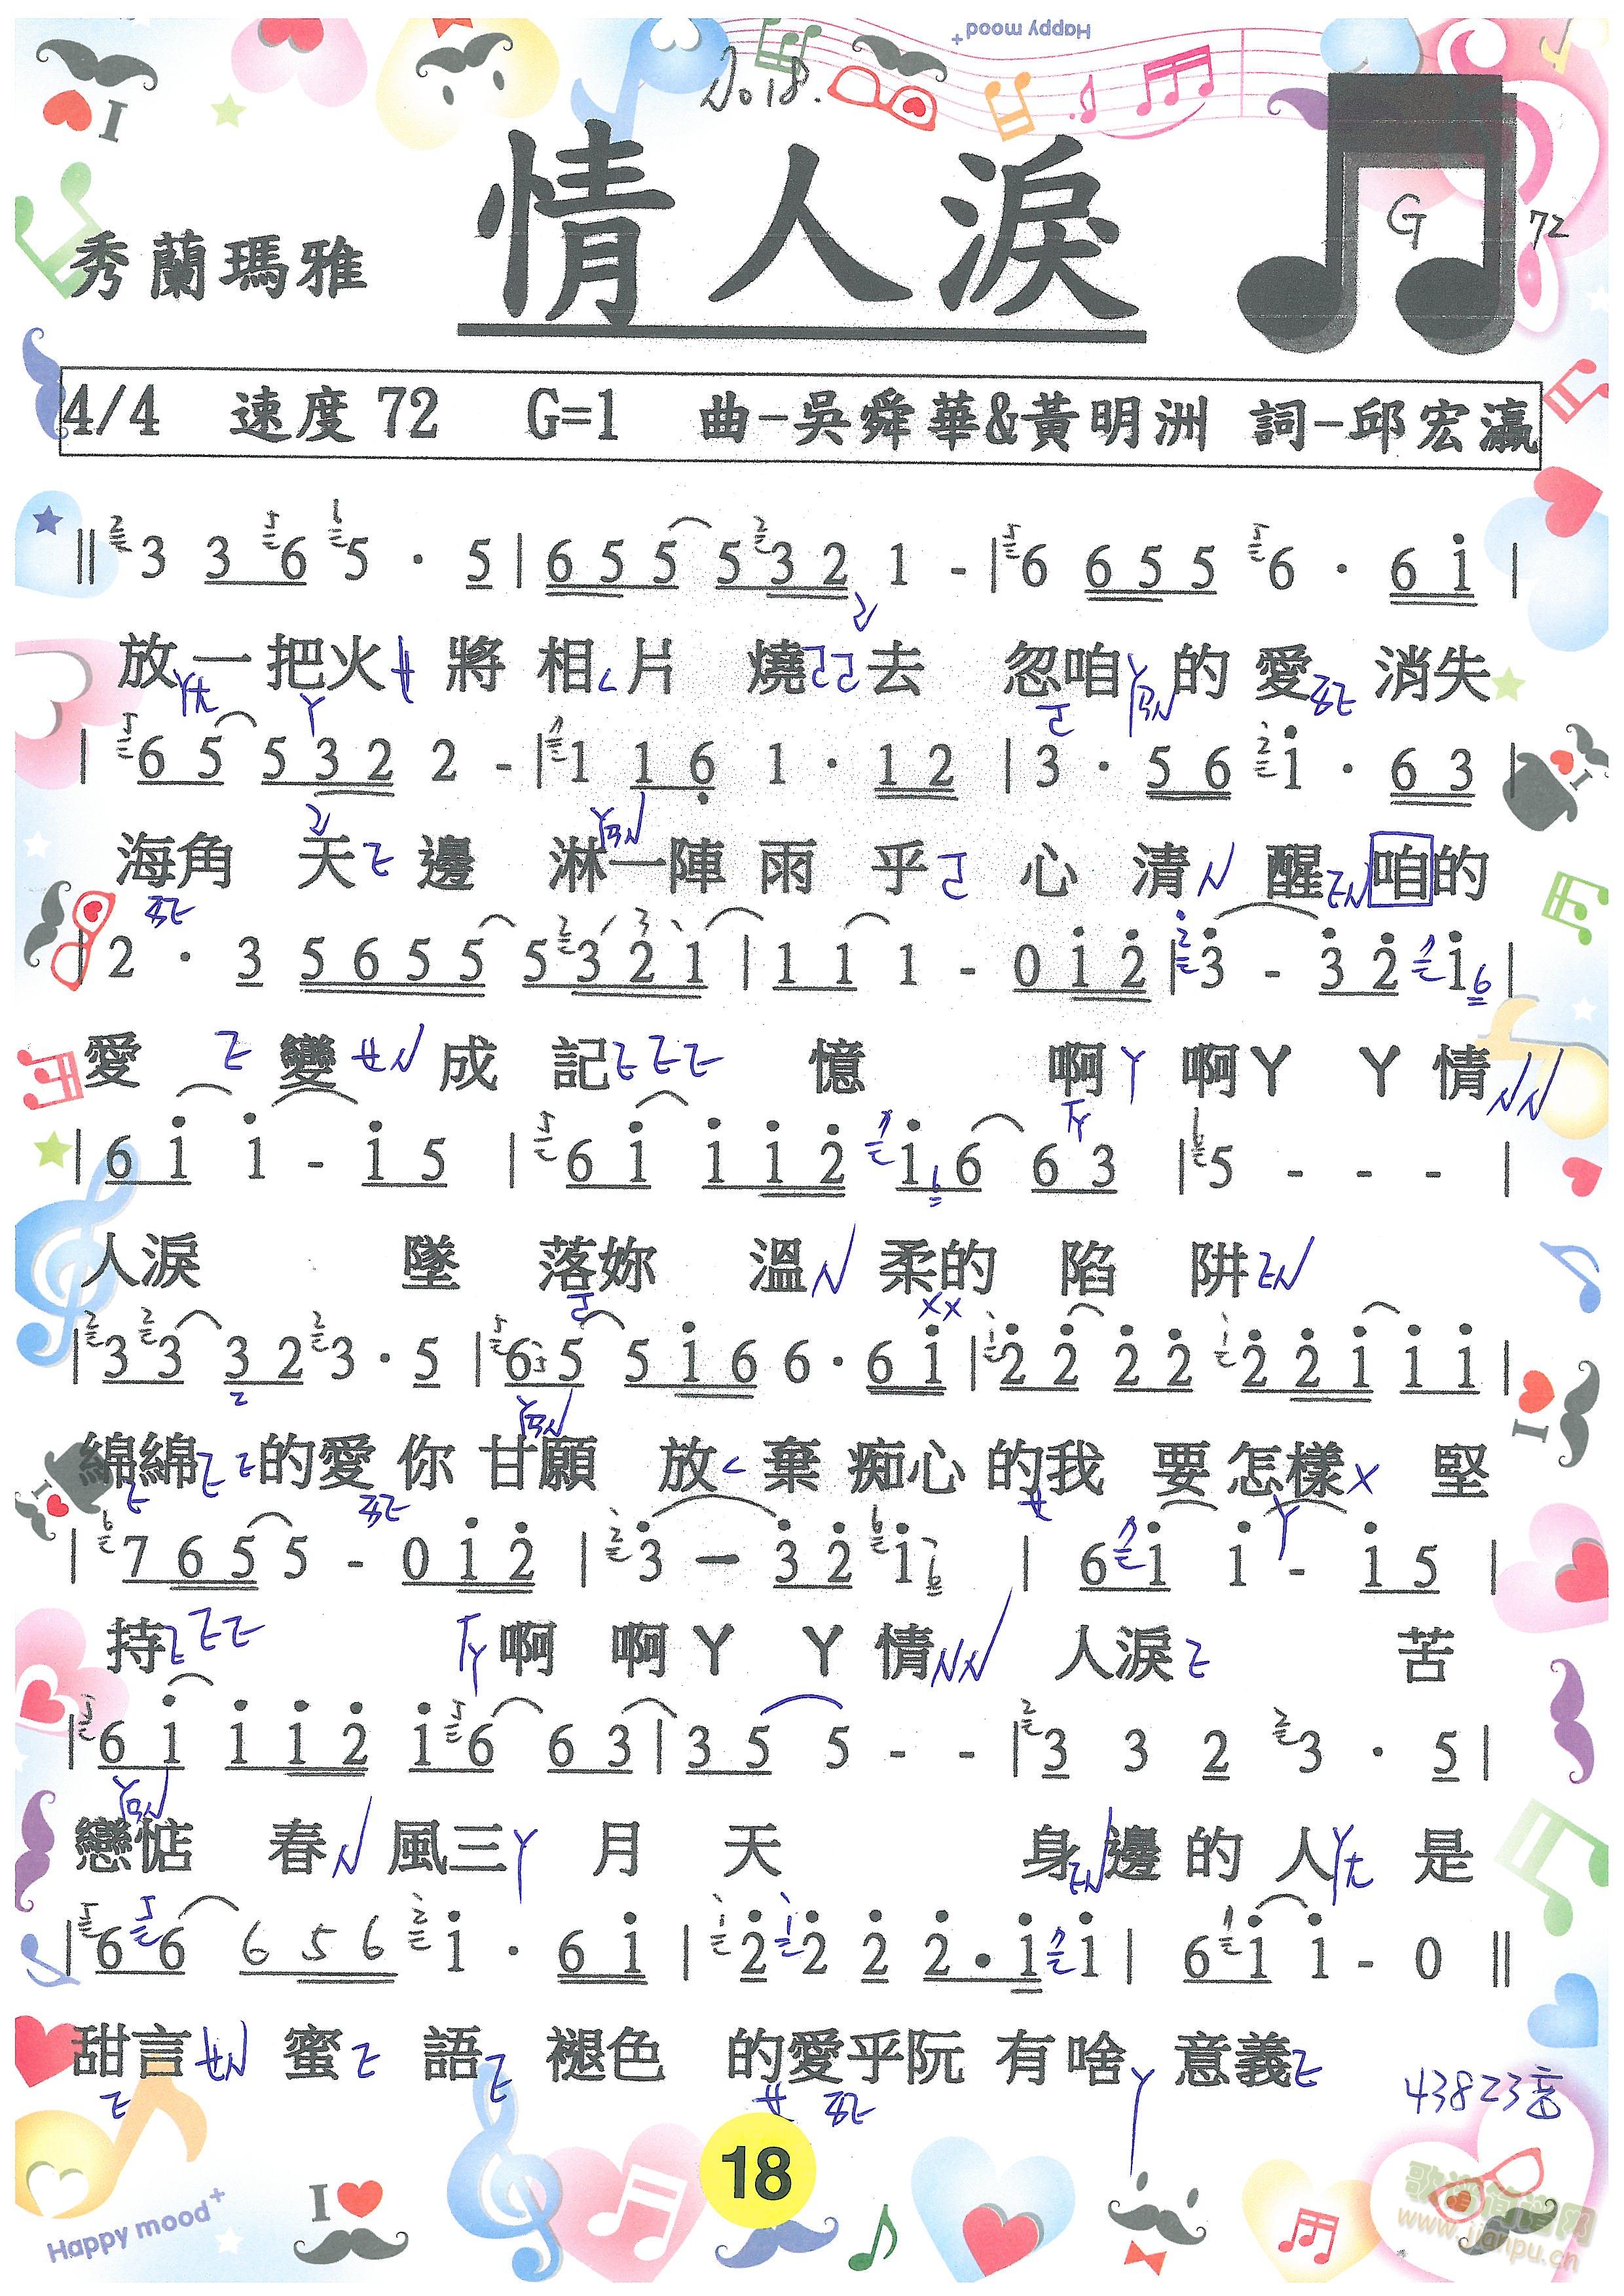 Happy mood+
2018.
情人淚
G
72
秀蘭瑪雅
4/4 速度 72 G=1 曲-吳舜華&黃明洲 詞-邱宏瀛
‖ 3 3 6 5 · 5 | 6 5 5 5 3 2 1 - | 6 6 5 5 6 · 6 i |
放一把火 將 相 片 燒 去 忽咱 的 愛 消失
| 6 5 5 3 2 2 - | 1 1 6 1 · 1 2 | 3 · 5 6 i · 6 3 |
海角 天 邊 淋一陣 雨 乎 心 清 醒 咱的
| 2 · 3 5 6 5 5 5 3 2 1 | 1 1 1 - 0 i 2 | 3 - 3 2 i |
愛 變 成 記 憶 啊 啊ㄚ ㄚ 情
| 6 i i - i 5 | 6 i i i 2 i 6 6 3 | 5 - - - |
人淚 墜 落妳 溫 柔的 陷 阱
| 3 3 3 2 3 · 5 | 6 5 5 i 6 6 · 6 i | 2 2 2 2 2 2 i i i |
綿綿 的愛 你 甘願 放 棄 痴心 的我 要 怎樣 堅
| 7 6 5 5 - 0 i 2 | 3 - 3 2 i | 6 i i - i 5 |
持 啊 啊 ㄚ ㄚ 情 人淚 苦
| 6 i i i 2 i 6 6 3 | 3 5 5 - - | 3 3 2 3 · 5 |
戀惦 春 風三 月 天 身 邊 的 人 是
| 6 6 6 5 6 i · 6 i | 2 2 2 2 · i i | 6 i i - 0 ‖
甜言 蜜 語 褪色 的愛乎阮 有啥 意義
43823音
18
Happy mood+
I
歌谱简谱网
www.jianpu.cn